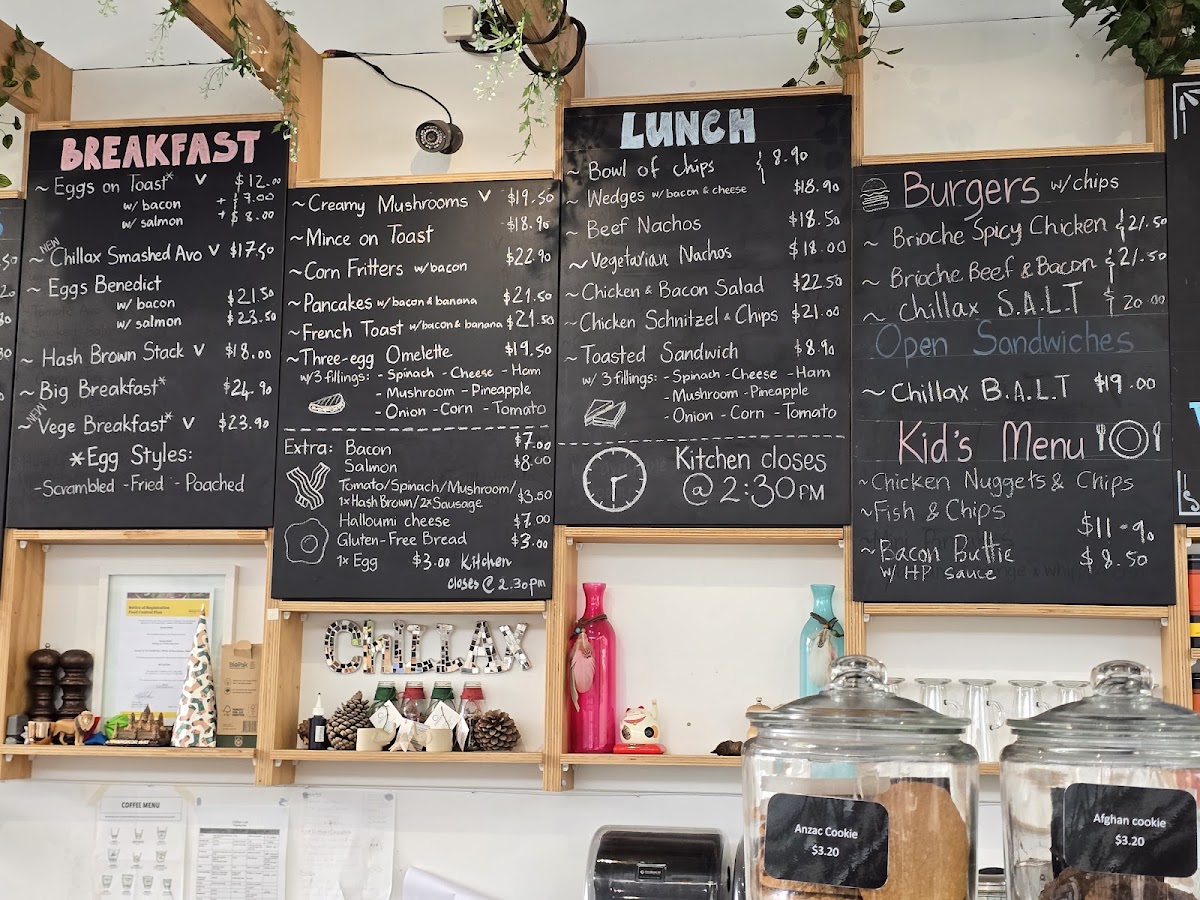 BREAKFAST
~ Eggs on Toast* V $12.00
w/ bacon + $7.00
w/ salmon + $8.00
NEW
~ Chillax Smashed Avo V $17.50
~ Eggs Benedict
w/ bacon $21.50
w/ salmon $23.50
~ Hash Brown Stack V $18.00
~ Big Breakfast* $24.90
NEW
~ Vege Breakfast* V $23.90
*Egg Styles:
-Scrambled -Fried -Poached
~ Creamy Mushrooms V $19.50
~ Mince on Toast $18.90
~ Corn Fritters w/bacon $22.90
~ Pancakes w/bacon & banana $21.50
~ French Toast w/bacon & banana $21.50
~ Three-egg Omelette $19.50
w/3 fillings: - Spinach - Cheese - Ham
- Mushroom - Pineapple
- Onion - Corn - Tomato
Extra: Bacon $7.00
Salmon $8.00
Tomato/Spinach/Mushroom/
1x Hash Brown/2x Sausage $3.50
Halloumi cheese $7.00
Gluten-Free Bread $3.00
1x Egg $3.00 Kitchen
closes @ 2.30pm
LUNCH
~ Bowl of chips $8.90
~ Wedges w/ bacon & cheese $18.90
~ Beef Nachos $18.50
~ Vegetarian Nachos $18.00
~ Chicken & Bacon Salad $22.50
~ Chicken Schnitzel & Chips $21.00
~ Toasted Sandwich $8.90
w/ 3 fillings: - Spinach - Cheese - Ham
- Mushroom - Pineapple
- Onion - Corn - Tomato
Kitchen closes
@ 2:30PM
Burgers w/chips
~ Brioche Spicy Chicken $21.50
~ Brioche Beef & Bacon $21.50
~ Chillax S.A.L.T $20.00
Open Sandwiches
~ Chillax B.A.L.T $19.00
Kid's Menu
~ Chicken Nuggets & Chips
~ Fish & Chips $11.90
~ Bacon Buttie $8.50
w/ HP sauce
CHILLAX
Notice of Registration
Food Control Plan
BioPak
COFFEE MENU
Anzac Cookie
$3.20
Afghan cookie
$3.20